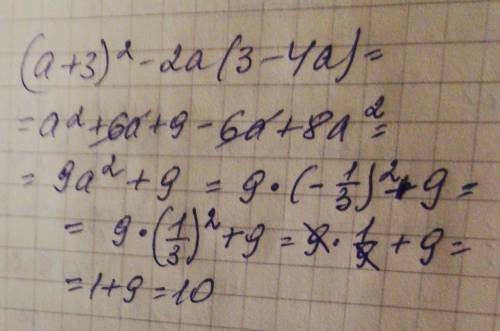 (a+3)² - 2a(3-4a) =
= a² + 6a + 9 - 6a + 8a² =
= 9a² + 9 = 9·(-1/3)² + 9 =
= 9·(1/3)² + 9 = 9·1/9 + 9 =
= 1+9 = 10